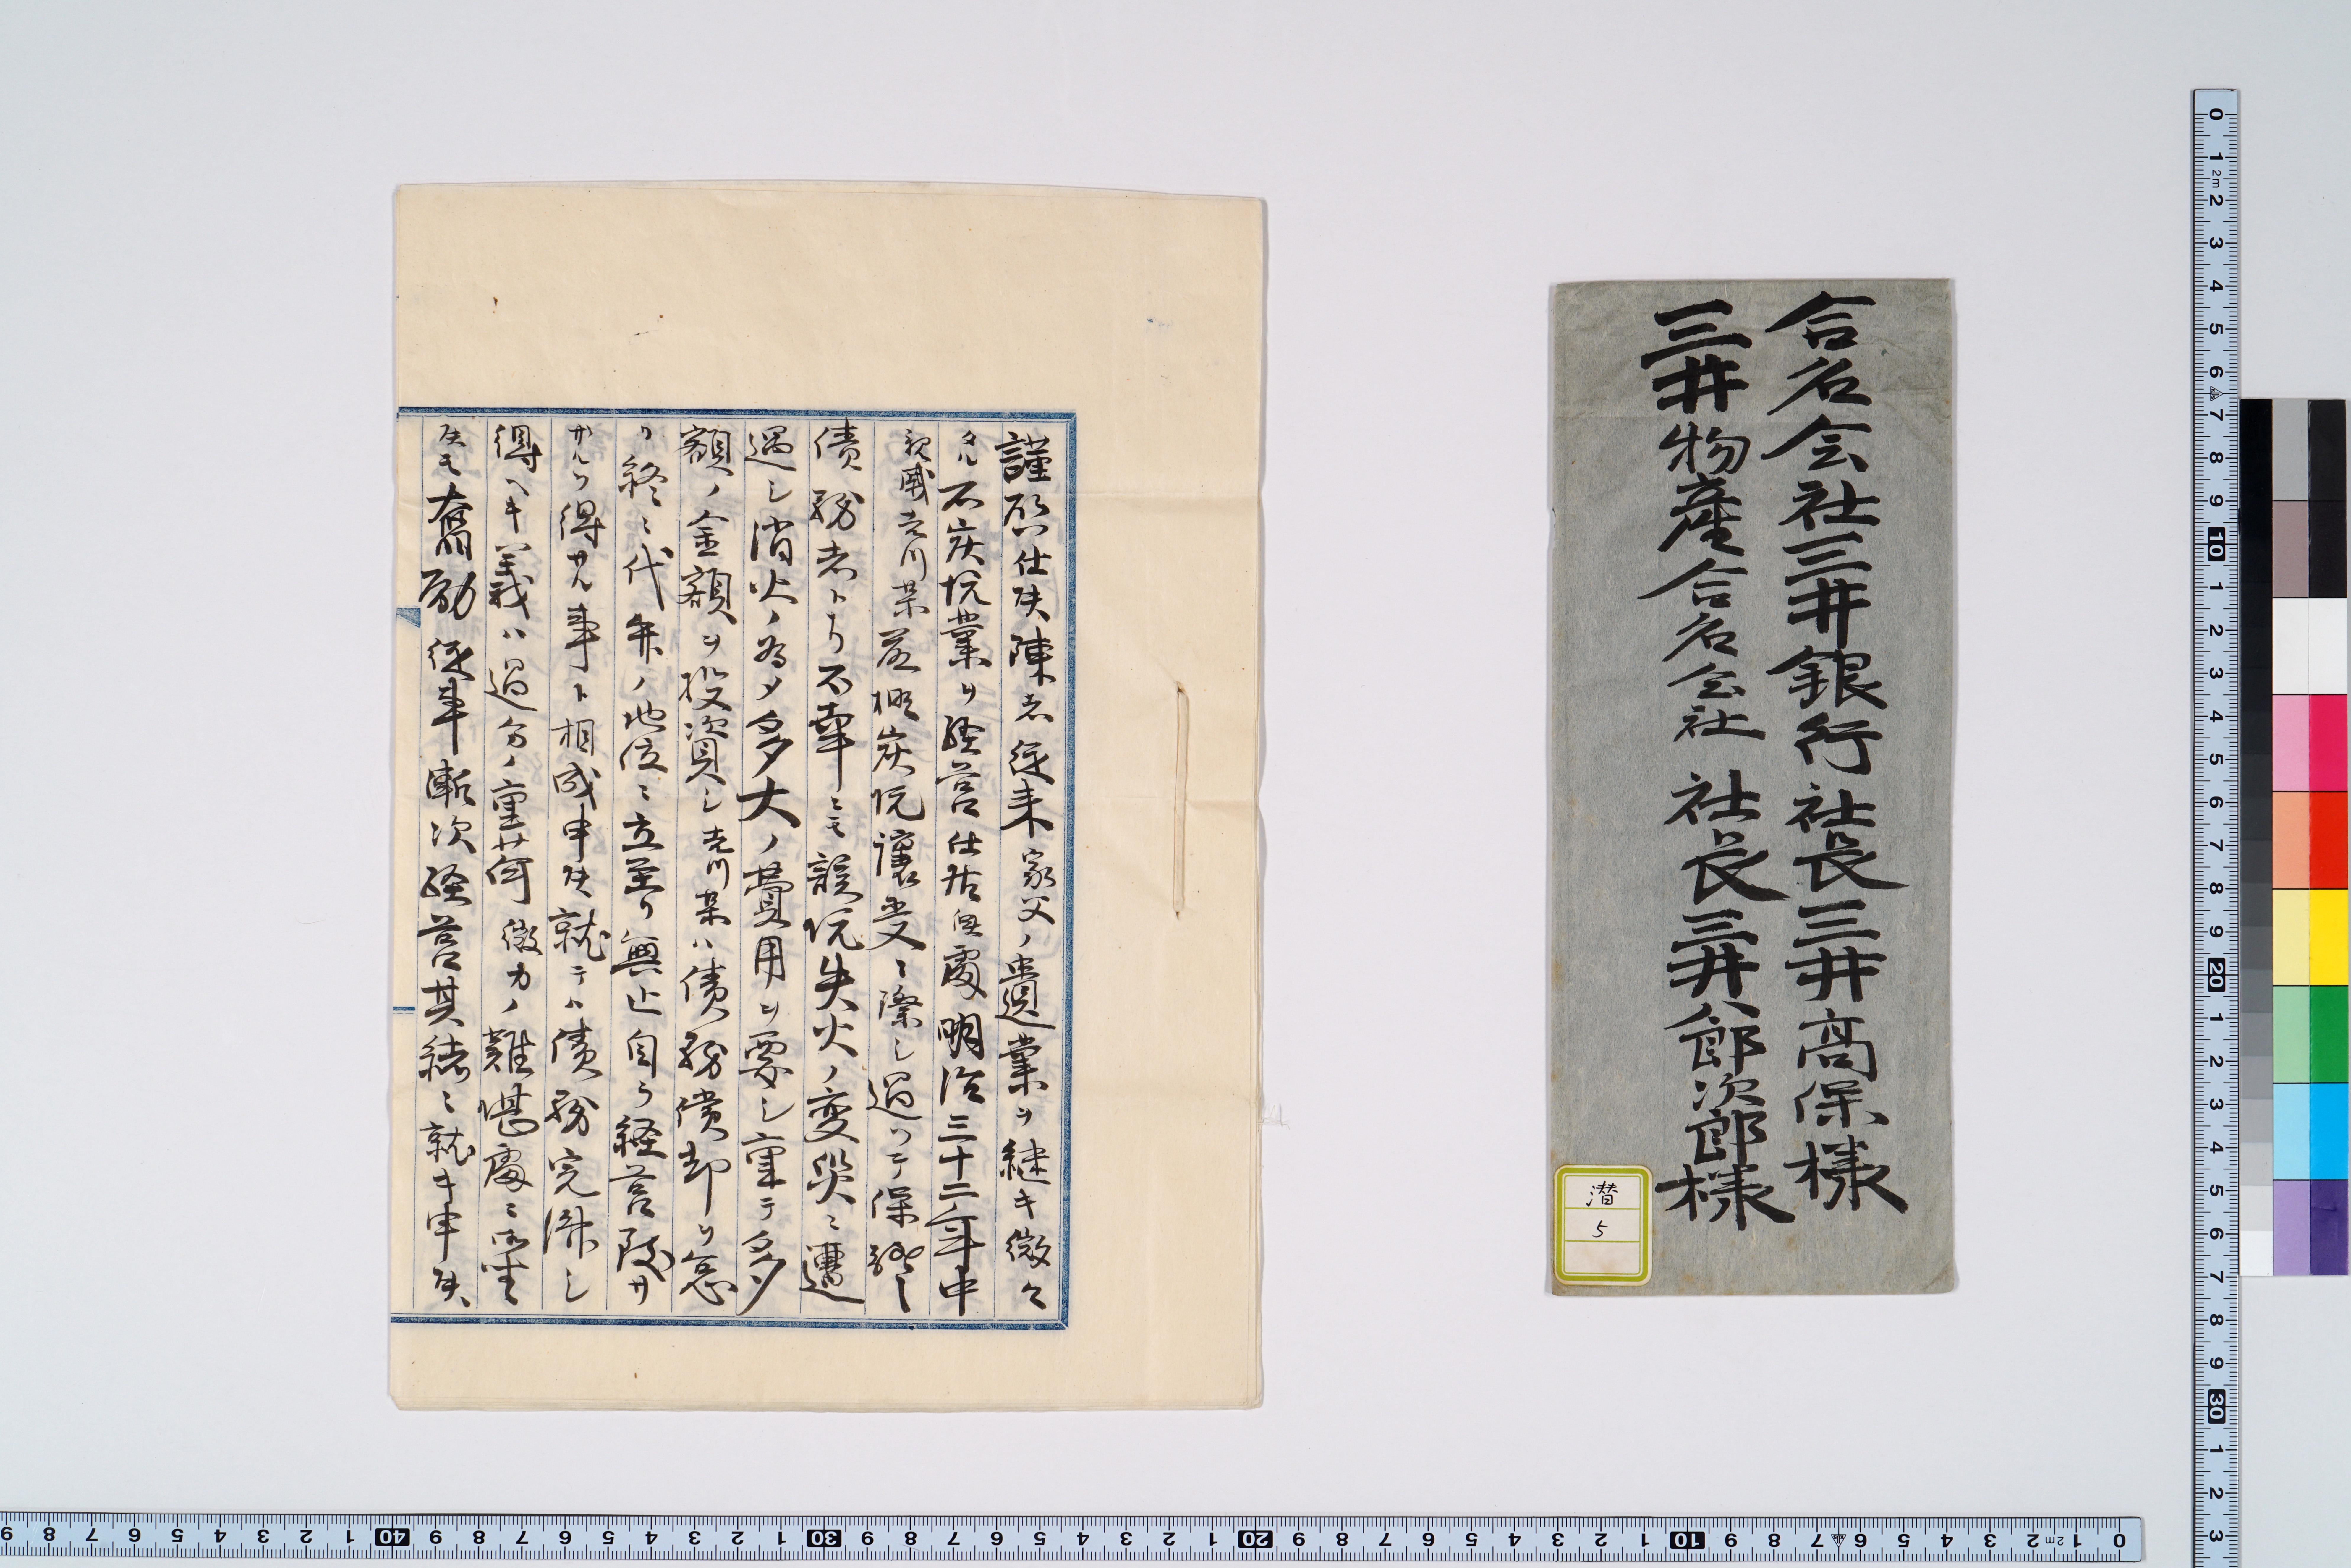 合名会社三井銀行社長三井高保様
三井物産合名会社社長三井八郎次郎様
潜
5
謹啓仕候陳者従来家父ノ遺業ヲ継キ微々
タル石炭坑業ヲ経営仕居候處明治三十二年中
親戚吉川某 炭坑譲受ニ際シ過ツテ保証
債務者トナリ不幸ニモ該坑失火ノ変災ニ遭
遇シ消火ノ為メ多大ノ費用ヲ要シ重テ多
額ノ金額ヲ投資シ吉川某ハ債務償却ヲ怠
リ終ニ代弁ノ地位ニ立至リ無止自ラ経営致サ
ザルヲ得ザル事ト相成申候就テハ債務完済シ
得ヘキ義ハ過分ノ重荷微力ノ難堪處ニ御座
候モ奮励従事漸次経営其緒ニ就キ申候